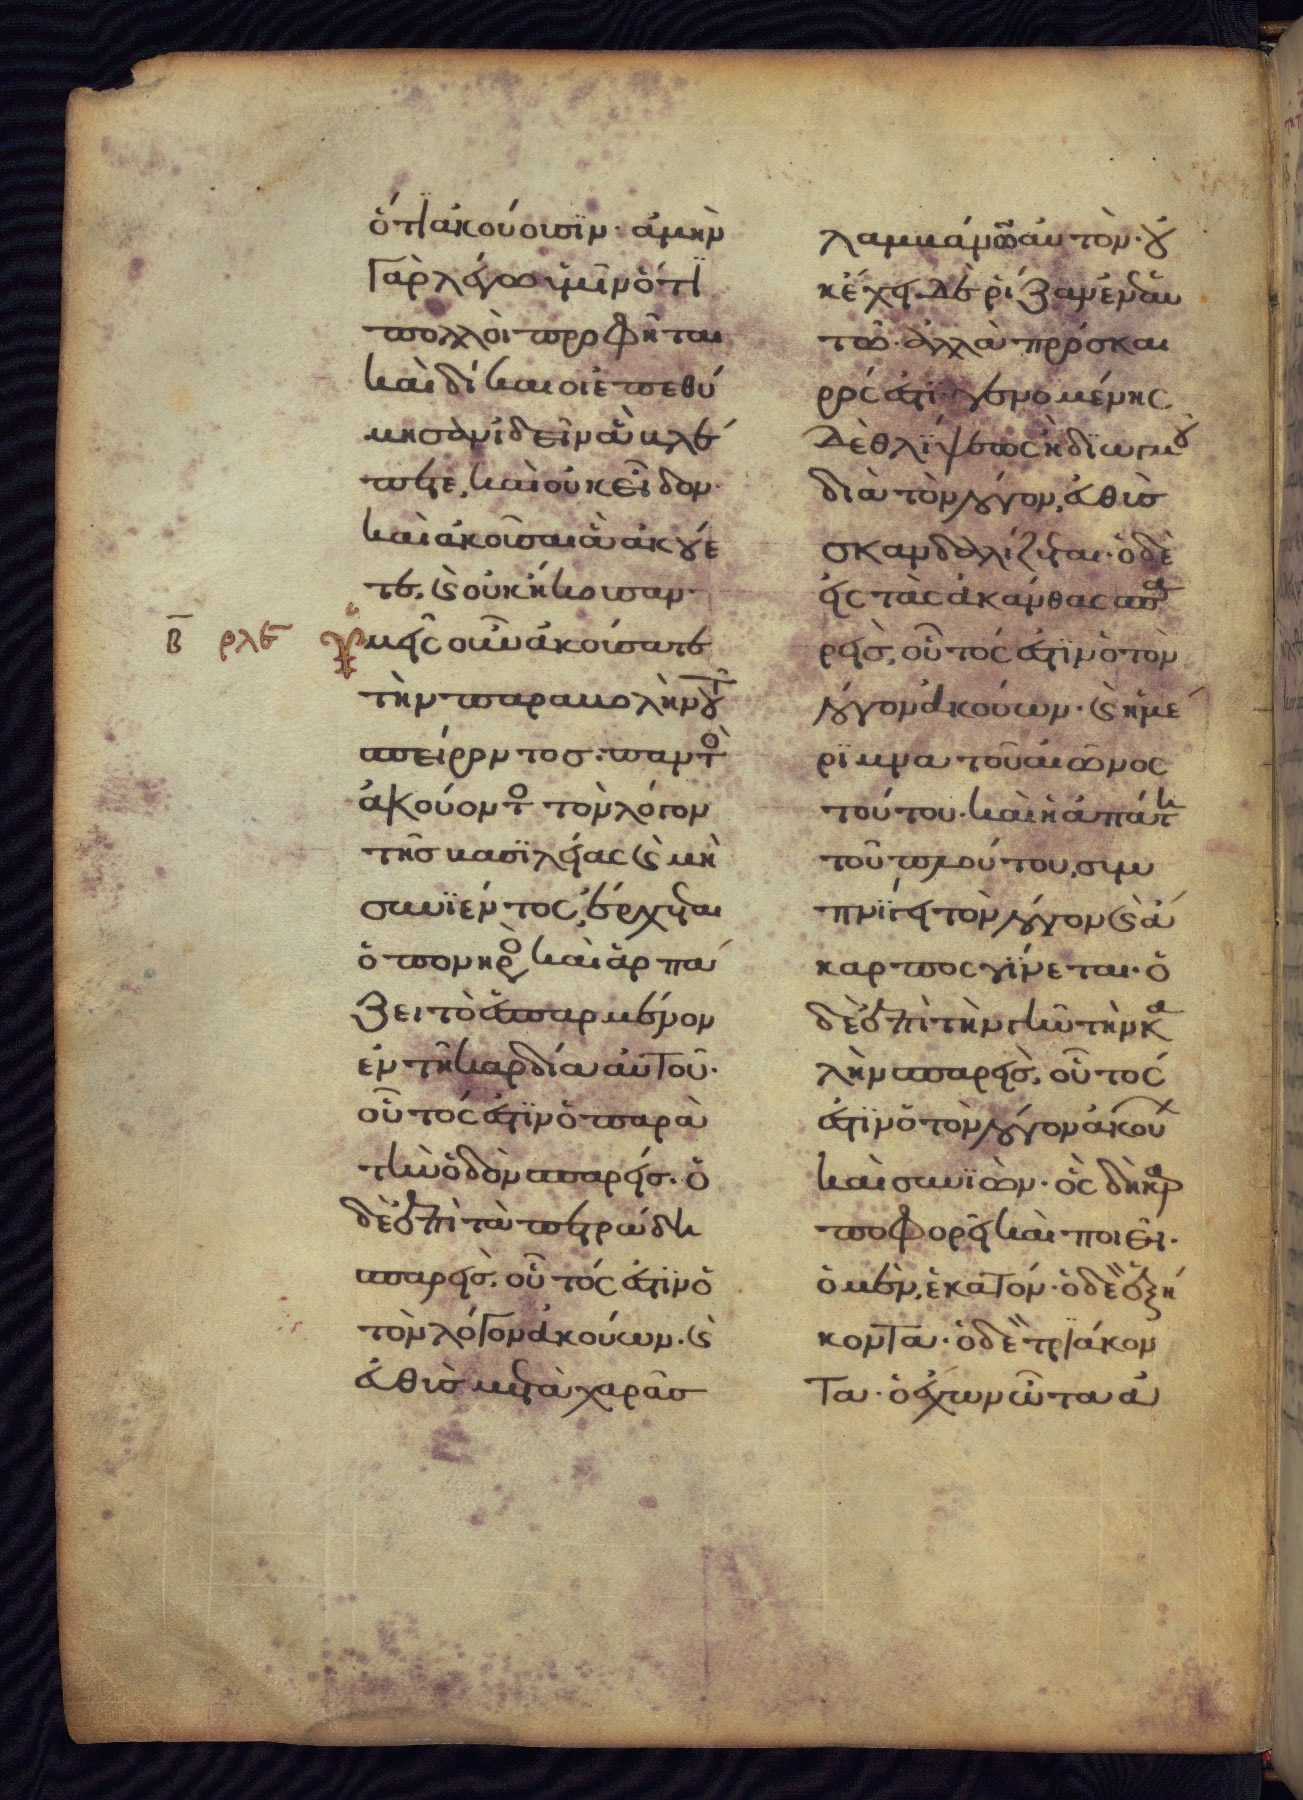 ὅτι ἀκούουσιν· ἀμὴν
γὰρ λέγω ὑμῖν ὅτι
πολλοὶ προφῆται
καὶ δίκαιοι ἐπεθύ
μησαν ἰδεῖν ἃ βλέ
πετε, καὶ οὐκ εἶδον·
καὶ ἀκοῦσαι ἃ ἀκούε
τε, ϗ οὐκ ἤκουσαν·
β̄ ρλε Ὑμεῖς οὖν ἀκούσατε
τὴν παραβολὴν τοῦ
σπείροντος· παντὸ
ἀκούοντο τὸν λόγον
τῆς βασϊλείας ϗ μὴ
συνϊέντος, ἔρχεται
ὁ πονηρὸ καὶ ἁρπά
ζει τὸ ἐσπαρμένον
ἐν τῆ καρδία αὐτοῦ·
οὗτός ἐστϊν ὁ παρὰ
τὴν ὁδὸν σπαρείς· ὁ
δὲ ἐπὶ τὰ πετρώδη
σπαρεὶς, οὗτός ἐστϊν ὁ
τὸν λόγον ἀκούων· ϗ
εὐθὺς μετὰ χαρᾶς
λαμβάνων αὐτὸν· οὐ
κ ἔχει δὲ ρίζαν ἐν ἑαυ
τῶ· ἀλλὰ πρόσκαι
ρός ἐστϊ· γενομένης
δὲ θλϊψεως ἢ διωγμοῦ
διὰ τὸν λόγον, εὐθὺς
σκανδαλίζεται· ὁ δὲ
εἰς τὰς ἀκάνθας σπα
ρεὶς, οὗτός ἐστϊν ὁ τὸν
λόγον ἀκούων· ϗ ἡ μέ
ρϊμνα τοῦ αἰῶνος
τούτου· καὶ ἡ ἀπάτη
τοῦ πλούτου, συμ
πνϊγει τὸν λόγον ϗ ἄ
καρπος γϊνεται· ὁ
δὲ ἐπὶ τὴν γῆν τὴν κα
λὴν σπαρεὶς, οὗτός
ἐστϊν ὁ τὸν λόγον ἀκούων
καὶ συνϊῶν· ὃς δὴ καρ
ποφορεῖ καὶ ποιεῖ·
ὁ μὲν, ἑκατόν· ὁ δὲ ἑξή
κοντα· ὁ δὲ τριάκον
τα· ὁ ἔχων ὦτα ἀ